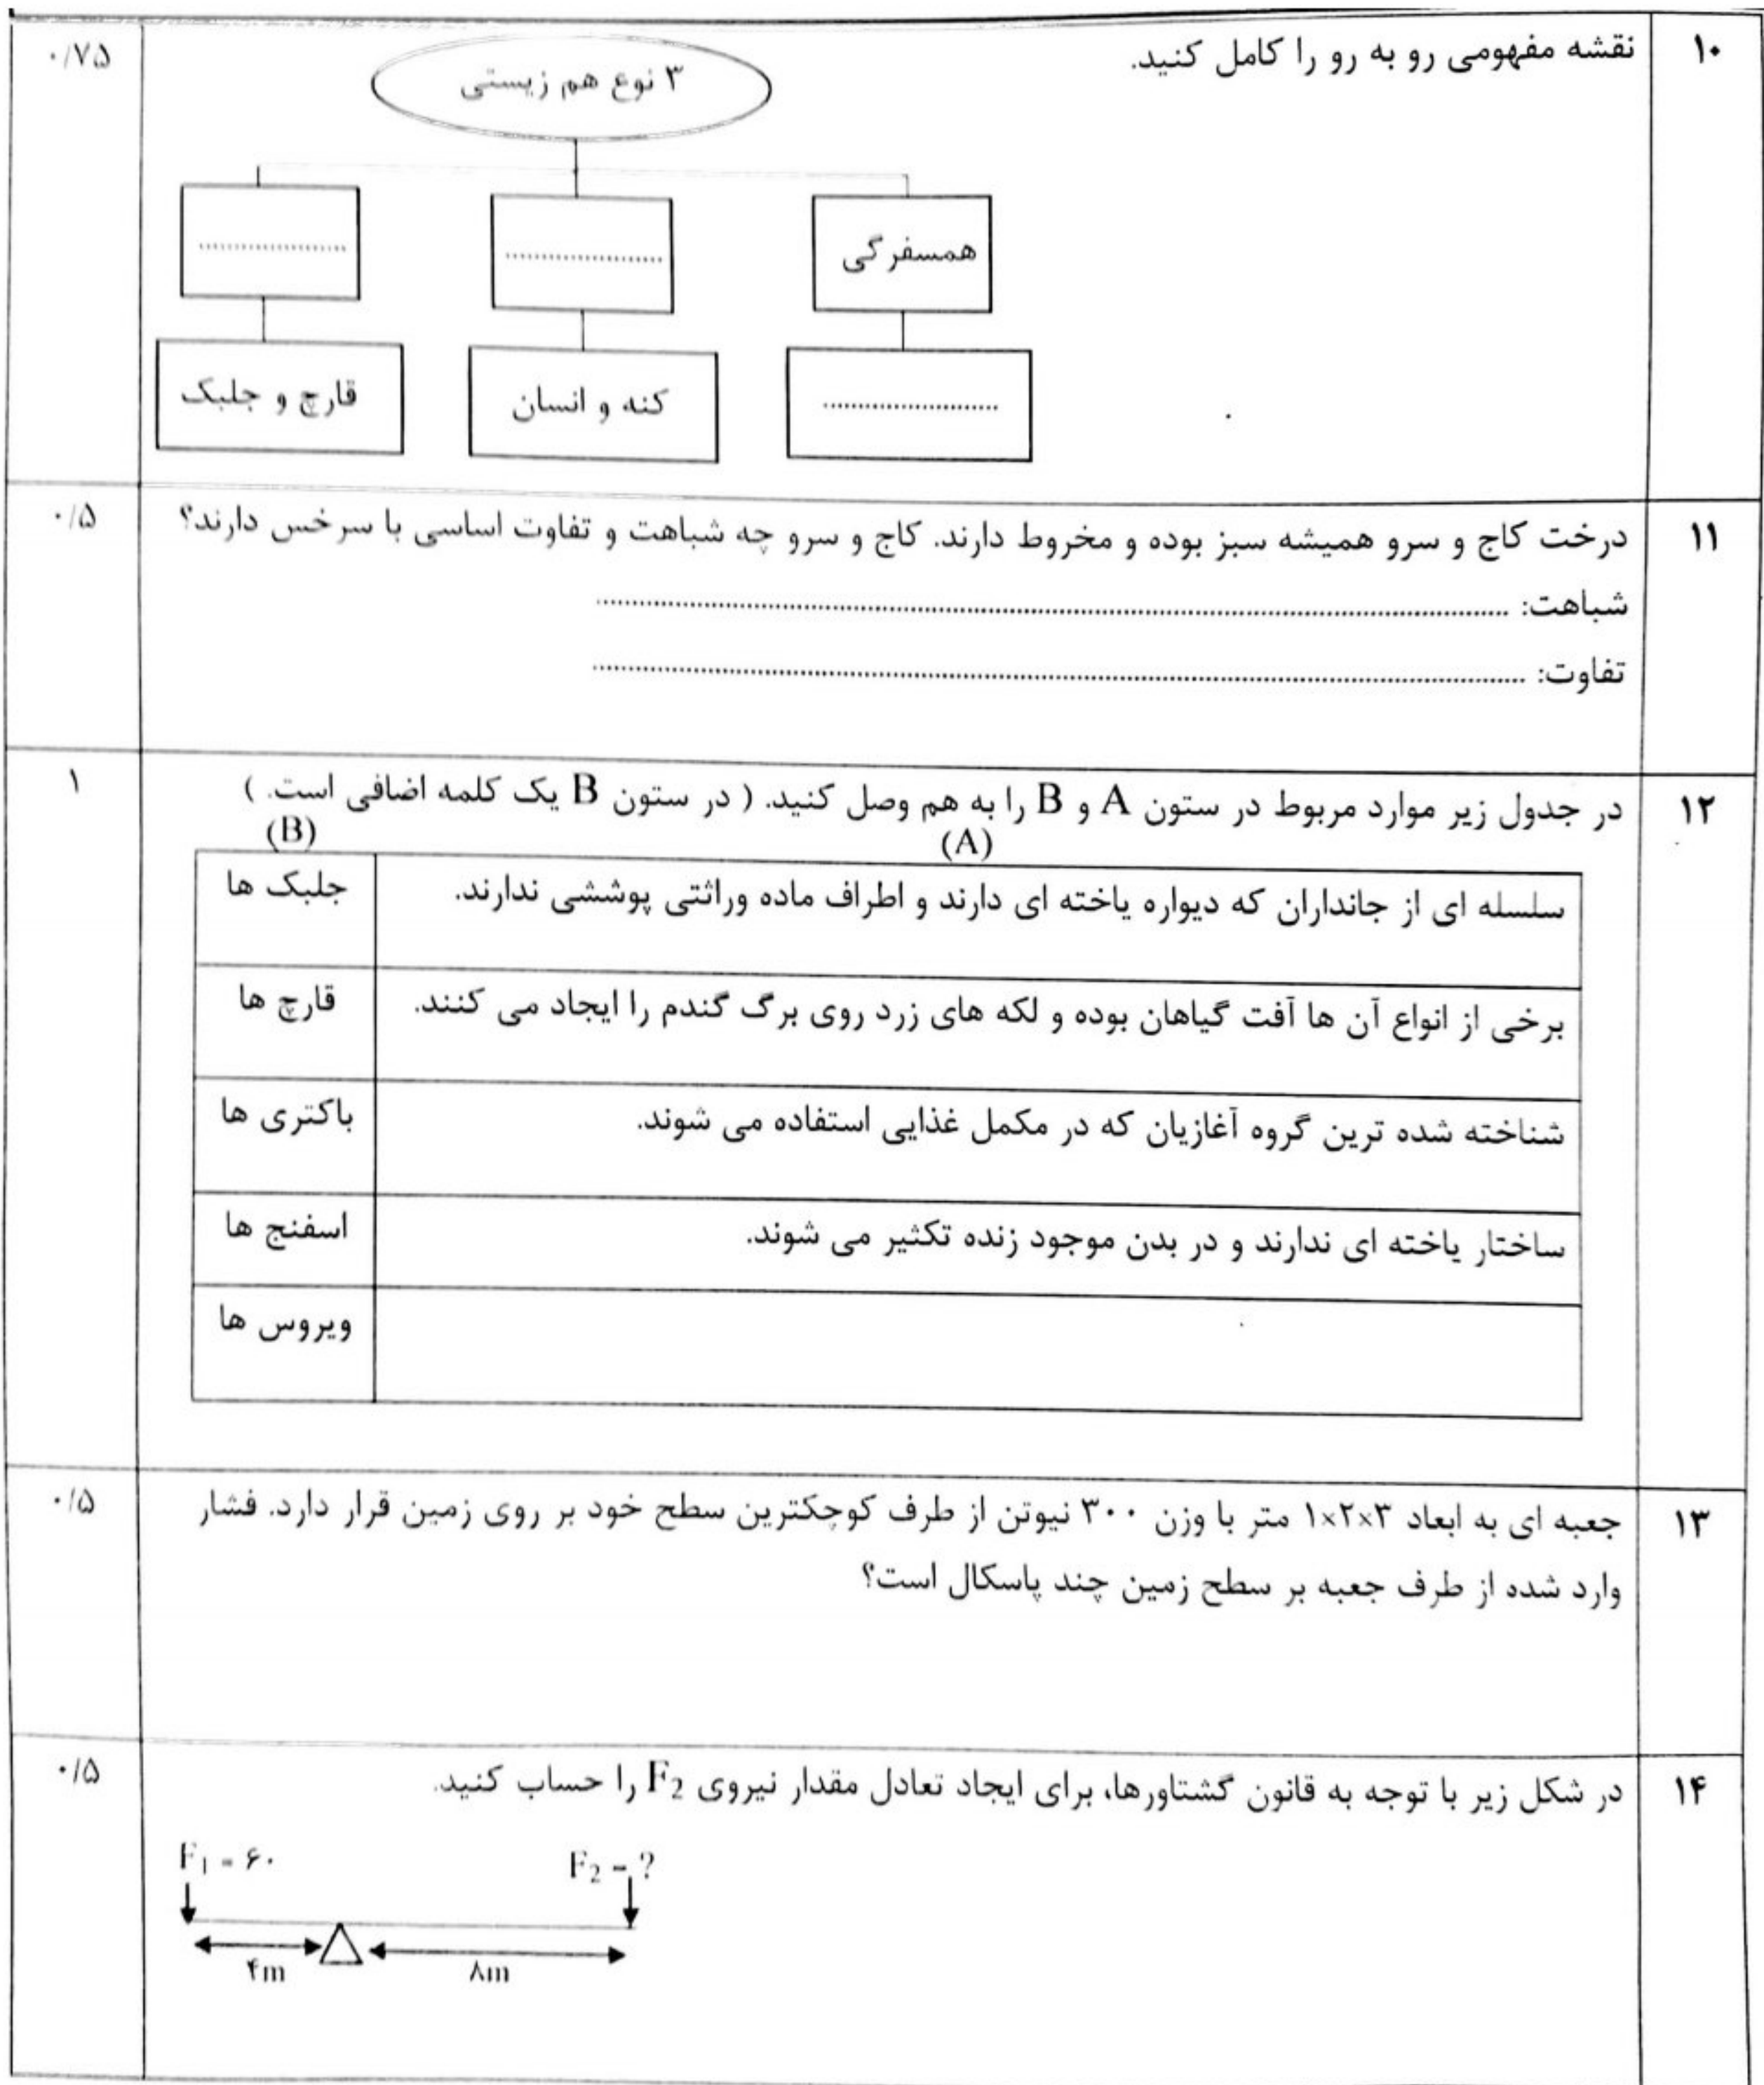 ۱۰
نقشه مفهومی رو به رو را کامل کنید.
۰/۷۵
۳ نوع هم زیستی
همسفرگی
....................
....................
....................
کنه و انسان
قارچ و جلبک
۱۱
درخت کاج و سرو همیشه سبز بوده و مخروط دارند. کاج و سرو چه شباهت و تفاوت اساسی با سرخس دارند؟
۰/۵
شباهت: ....................
تفاوت: ....................
۱۲
در جدول زیر موارد مربوط در ستون A و B را به هم وصل کنید. ( در ستون B یک کلمه اضافی است. )
۱
(A)
(B)
سلسله ای از جانداران که دیواره یاخته ای دارند و اطراف ماده وراثتی پوششی ندارند.
جلبک ها
برخی از انواع آن ها آفت گیاهان بوده و لکه های زرد روی برگ گندم را ایجاد می کنند.
قارچ ها
شناخته شده ترین گروه آغازیان که در مکمل غذایی استفاده می شوند.
باکتری ها
ساختار یاخته ای ندارند و در بدن موجود زنده تکثیر می شوند.
اسفنج ها
ویروس ها
۱۳
جعبه ای به ابعاد ۳×۲×۱ متر با وزن ۳۰۰ نیوتن از طرف کوچکترین سطح خود بر روی زمین قرار دارد. فشار
۰/۵
وارد شده از طرف جعبه بر سطح زمین چند پاسکال است؟
۱۴
در شکل زیر با توجه به قانون گشتاورها، برای ایجاد تعادل مقدار نیروی F2 را حساب کنید.
۰/۵
F1 = ۶۰
F2 = ?
۴m
۸m